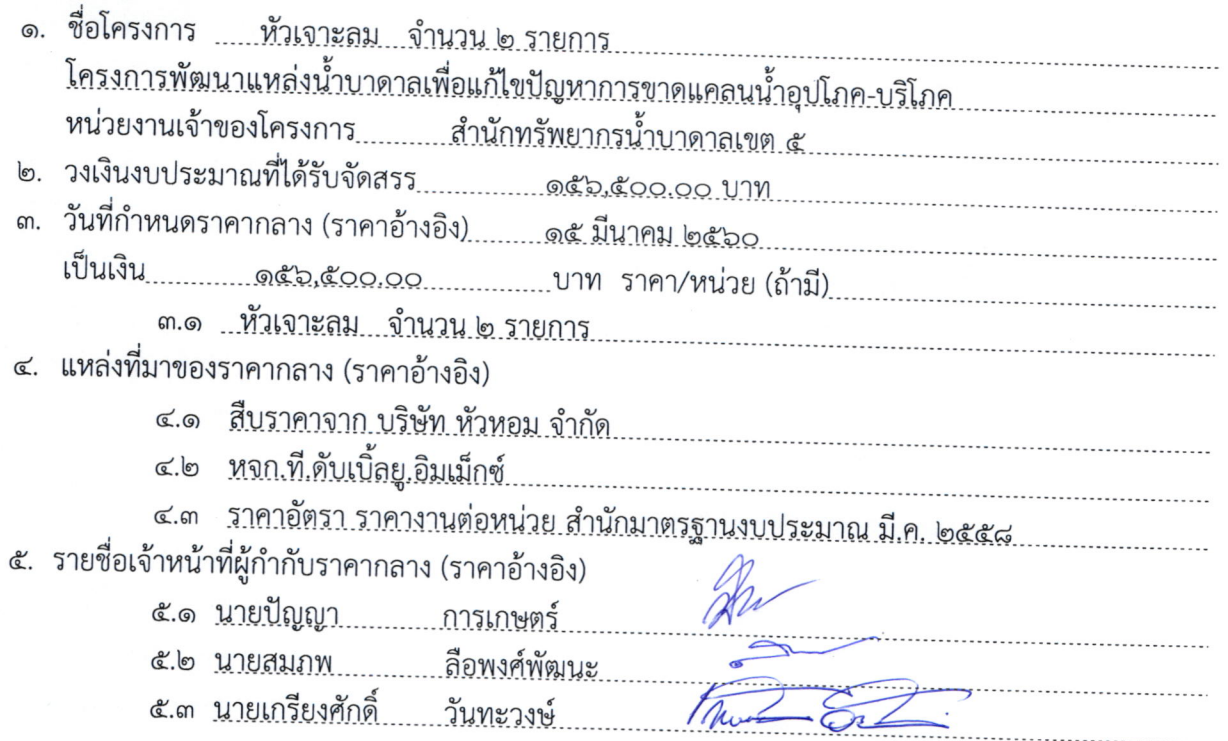 ๑. ชื่อโครงการ หัวเจาะลม จำนวน ๒ รายการ
โครงการพัฒนาแหล่งน้ำบาดาลเพื่อแก้ไขปัญหาการขาดแคลนน้ำอุปโภค-บริโภค
หน่วยงานเจ้าของโครงการ สำนักทรัพยากรน้ำบาดาลเขต ๕
๒. วงเงินงบประมาณที่ได้รับจัดสรร ๑๕๖,๕๐๐.๐๐ บาท
๓. วันที่กำหนดราคากลาง (ราคาอ้างอิง) ๑๕ มีนาคม ๒๕๖๐
เป็นเงิน ๑๕๖,๕๐๐.๐๐ บาท ราคา/หน่วย (ถ้ามี)
๓.๑ หัวเจาะลม จำนวน ๒ รายการ
๔. แหล่งที่มาของราคากลาง (ราคาอ้างอิง)
๔.๑ สืบราคาจาก บริษัท หัวหอม จำกัด
๔.๒ หจก.ที.ดับเบิ้ลยู.อิมเม็กซ์
๔.๓ ราคาอัตรา ราคางานต่อหน่วย สำนักมาตรฐานงบประมาณ มี.ค. ๒๕๕๘
๕. รายชื่อเจ้าหน้าที่ผู้กำกับราคากลาง (ราคาอ้างอิง)
๕.๑ นายปัญญา การเกษตร์
๕.๒ นายสมภพ ลือพงศ์พัฒนะ
๕.๓ นายเกรียงศักดิ์ วันทะวงษ์